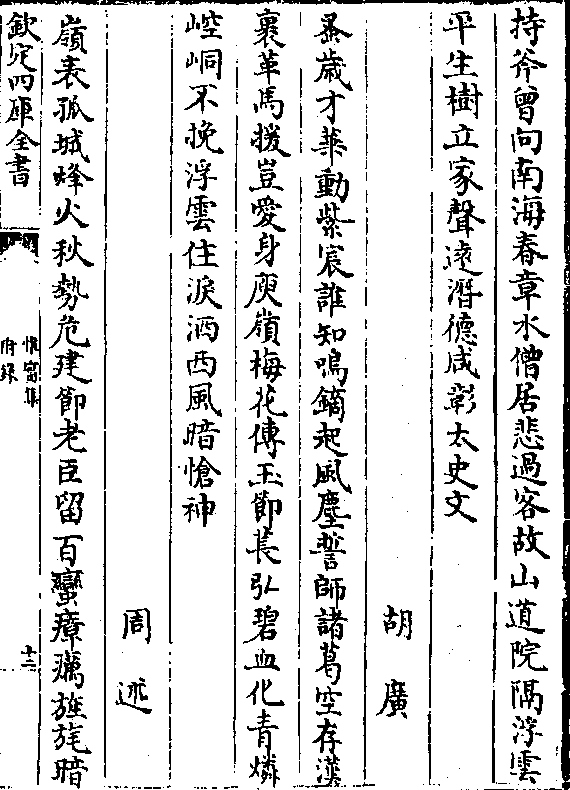 持斧曾向南海春章水僧居悲過客故山道院隔浮雲
平生樹立家聲逺潛德咸彰太史文
胡廣
蚤歳才華動紫宸誰知鳴鏑起風塵誓師諸葛空存漢
裹革馬援豈愛身庾嶺梅花傳玉節萇弘碧血化青燐
崆峒不挽浮雲住淚洒西風暗愴神
周述
嶺表孤城烽火秋勢危建節老臣留百蠻瘴癘旌旄暗
欽定四庫全書
附錄
十二